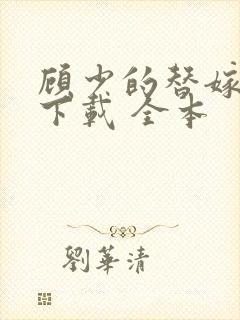 顾少的替嫁
下载 全本
劉華清